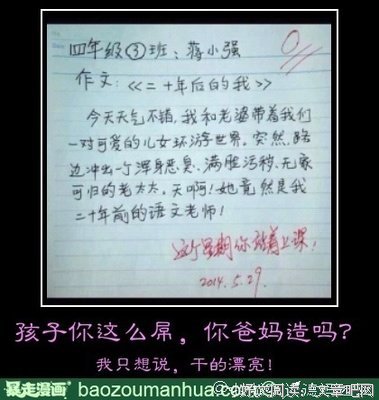 四年级③班:蒋小强
0
作文:《二十年后的我》
今天天气不错,我和老婆带着我们
一对可爱的儿女环游世界。突然,路
边冲出一个浑身恶臭、满脸污秽、无家
可归的老太太。天啊!她竟然是我
二十年前的语文老师!
这个星期你站着上课!
2014.5.29.
孩子你这么屌,你爸妈造吗?
我只想说,干的漂亮!
暴走漫画 baozoumanhua.com